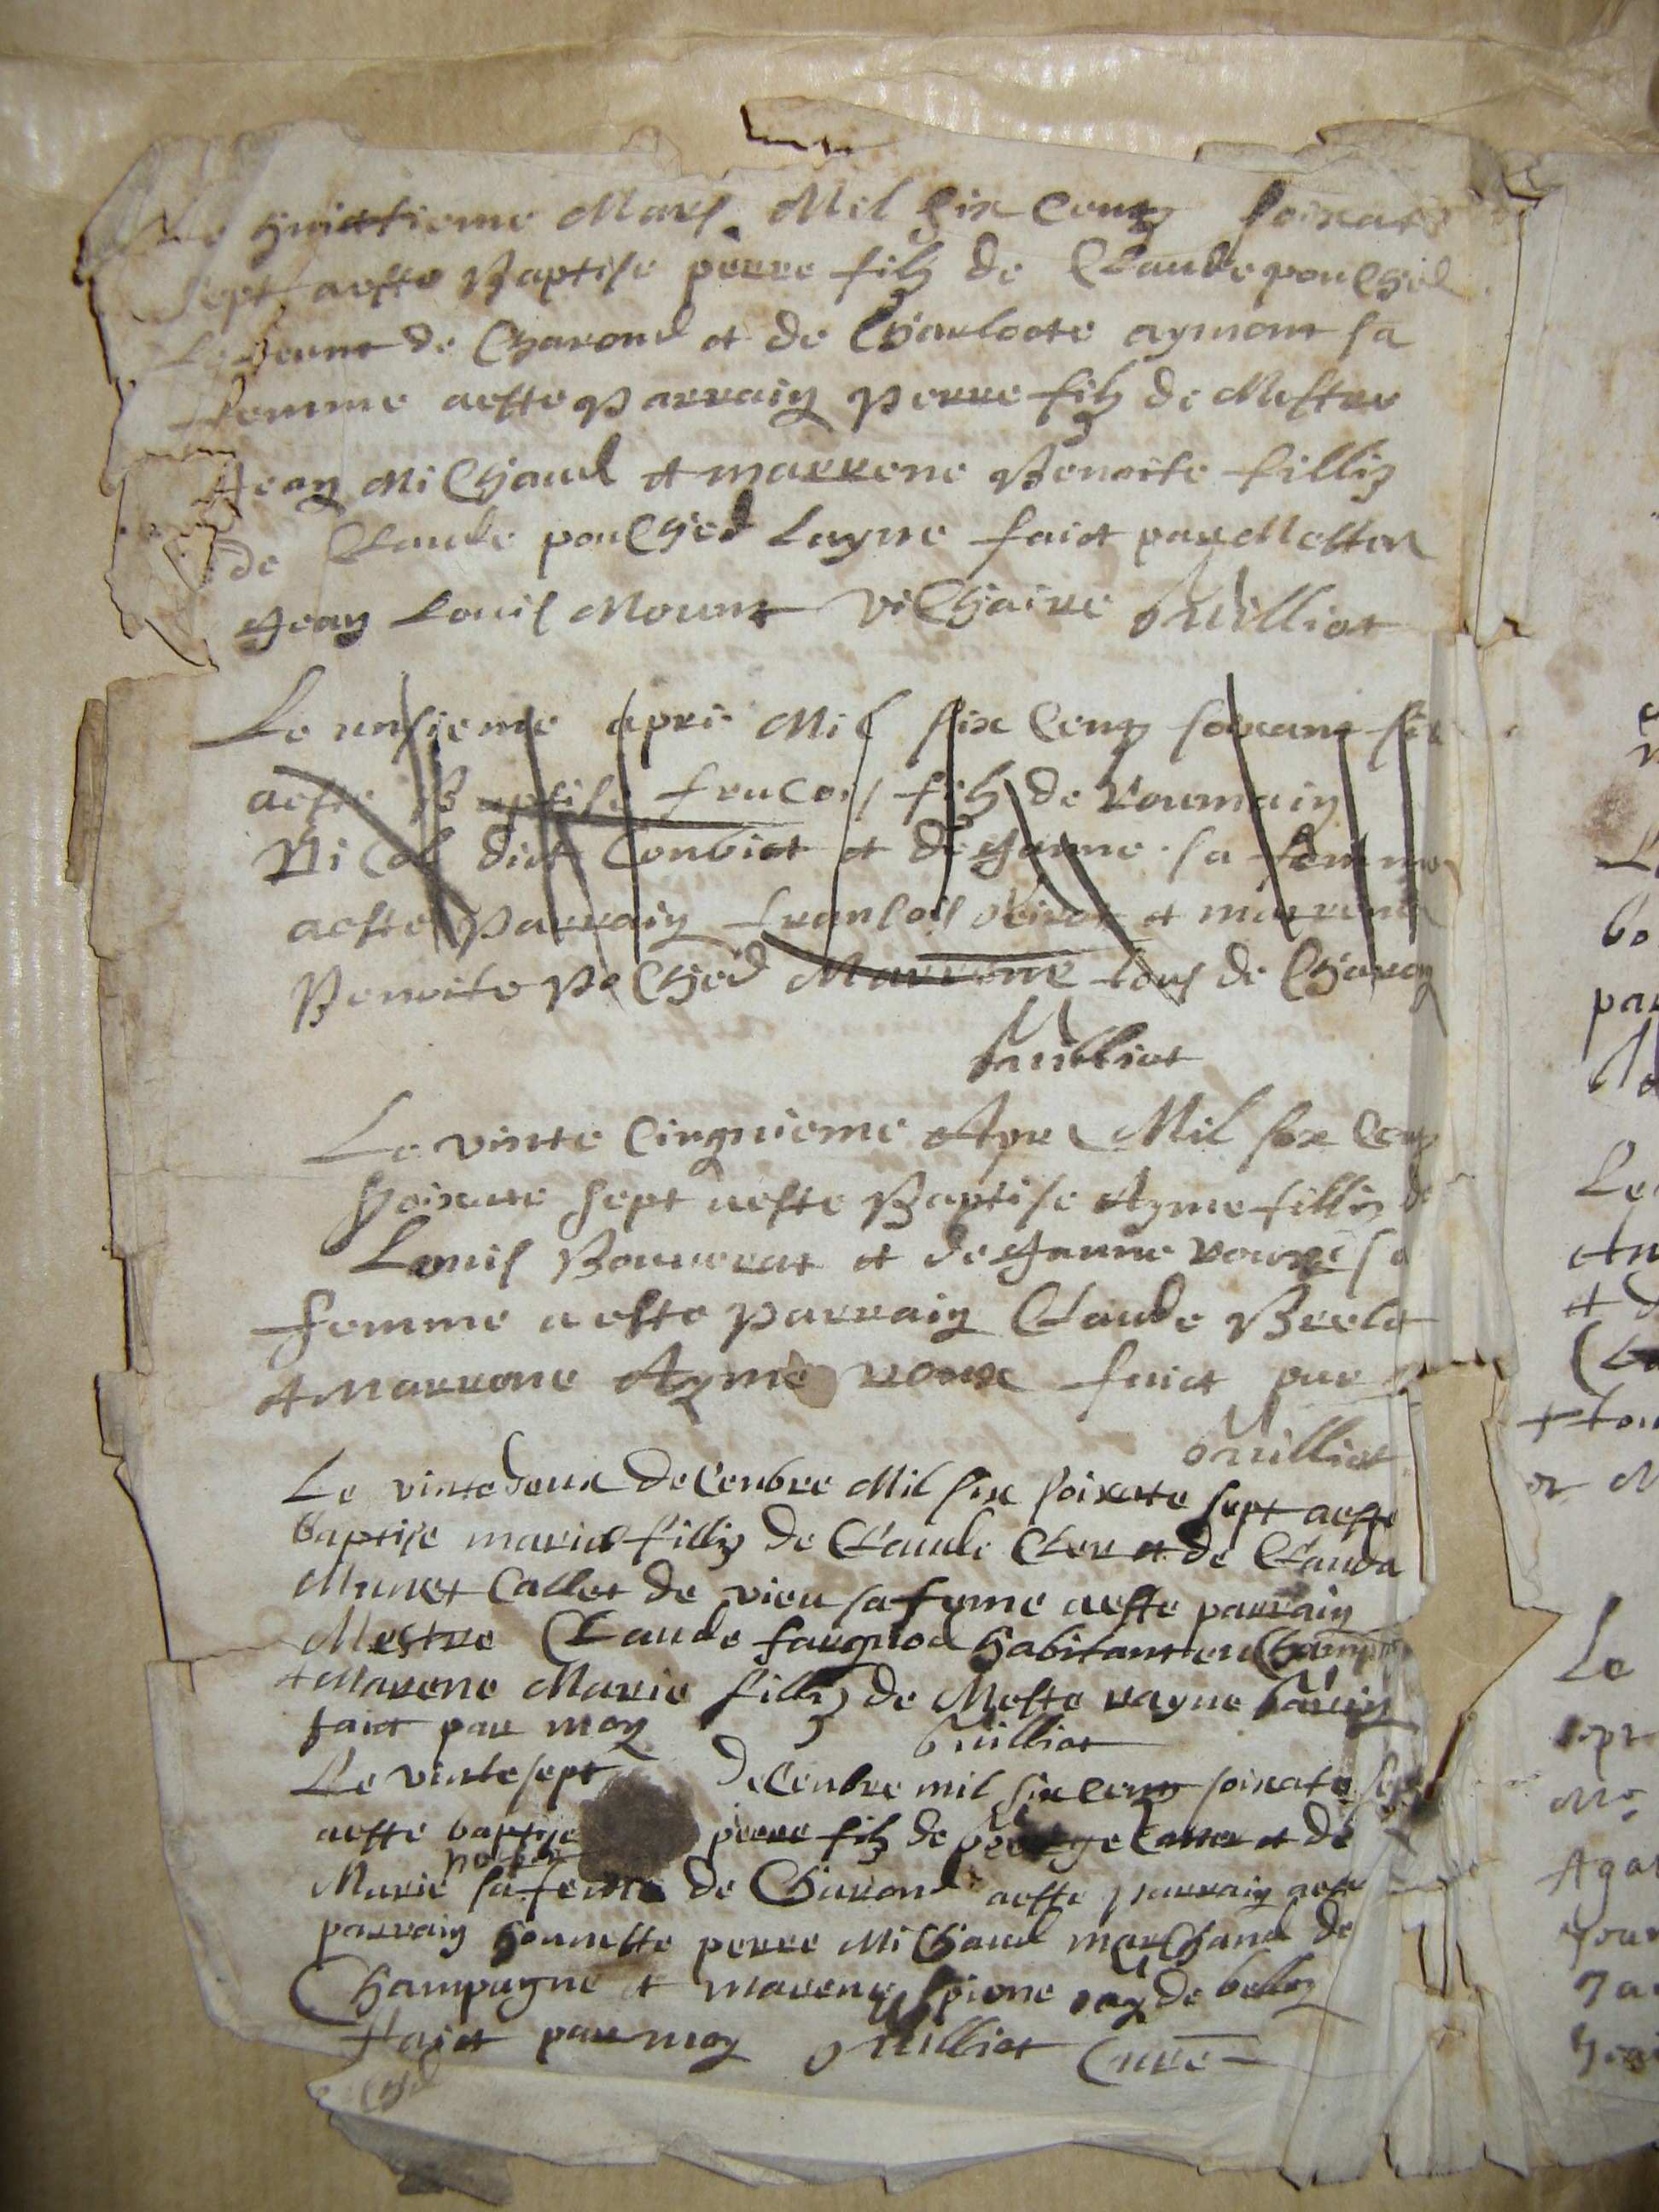 Le huictieme Mars Mil Six Centz soixate
sept aeste Baptise perre filz de Claude poulched
Le Jeune de Charond et de Charloote aymont sa
femme aeste parrain perre filz de Mestre
Jean Michaud et marrene Benoite fillis
de Claude poulched Layne faict par Mestre
Jean Louis Mounet vichaire Vuilliot
Le unsieme apri Mil six Centz soixant six
aeste Baptise francois filz de Roumain
Nicol dict Conbiat et de Janne sa femme
aeste parrain francois et marrene
Benoite Poched Marrene tous de Charon
Vuilliot
Le vinte Cinquieme Apri Mil six Centz
soixate sept aeste Baptise Ayme fillis de
Louis Bourerat et de Janne roux sa
femme aeste parrain Claude Brelet
et Marrene Ayme roux faict par
Vuilliot
Le vintedeux decenbre Mil six soixate sept aeste
baptise marie fillis de Claude Cler et de Clauda
Munet Callet de vieu sa feme aeste parrain
Mestre Claude fargnod habitant en Champ
et Marene Marie fillis de Meste rayne
faict par moy Vuilliot
Le vinte sept decenbre mil six centz soixate sept
aeste baptise perre filz de George et de
Marie sa feme de Charond aeste parrain aeste
parrain honneste perre Michaud marchand de
Champagne et marene pione de
faict par moy Vuilliot Cure